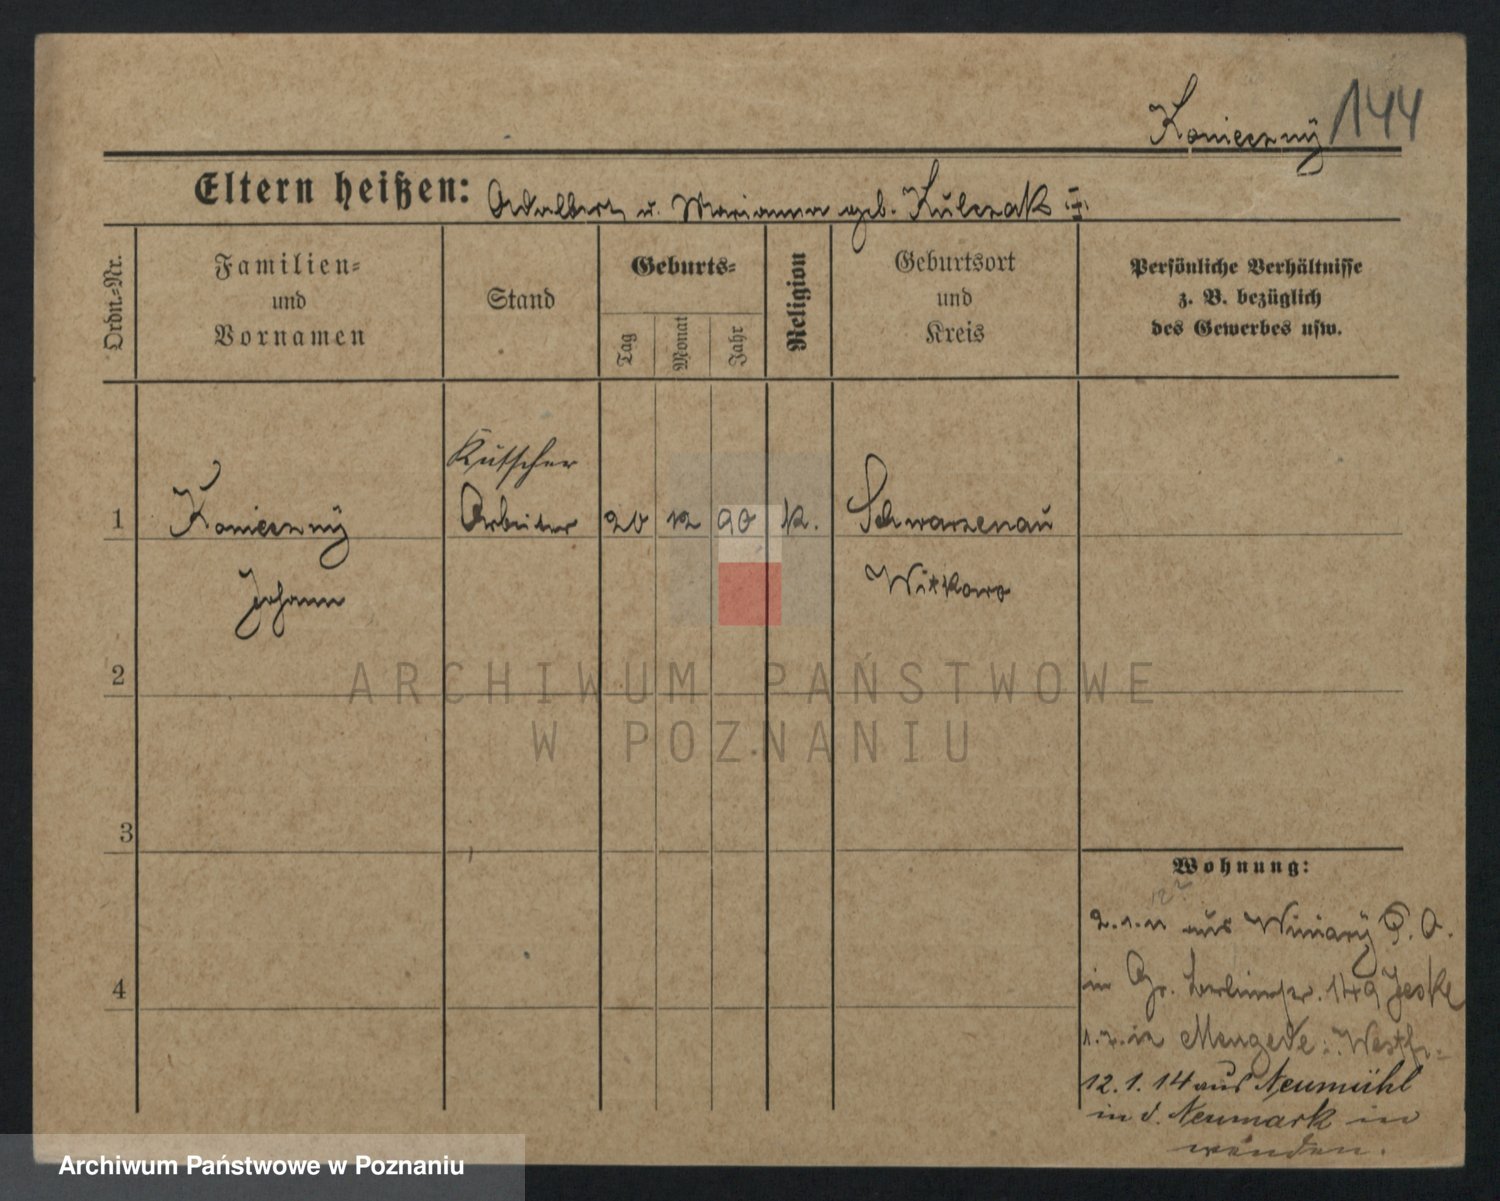 Konieczny 144
Eltern heißen: Adalbert u. Marianna geb. Kulczak
Ordn.-Nr.
Familien-
und
Vornamen
Stand
Geburts-
Tag
Monat
Jahr
Religion
Geburtsort
und
Kreis
Persönliche Verhältnisse
z. B. bezüglich
des Gewerbes usw.
Kutscher
1 Konieczny Arbeiter 20 12 90 k. Schwarzenau
Johann Witkowo
2
ARCHIWUM PAŃSTWOWE
W POZNANIU
3
Wohnung:
2.1.11 aus Winiary P. O.
in Gr. Berlinerstr. 149 Jeske
in Mengede Westf.
12.1.14 aus Neumühl
in d. Neumark
4
Archiwum Państwowe w Poznaniu